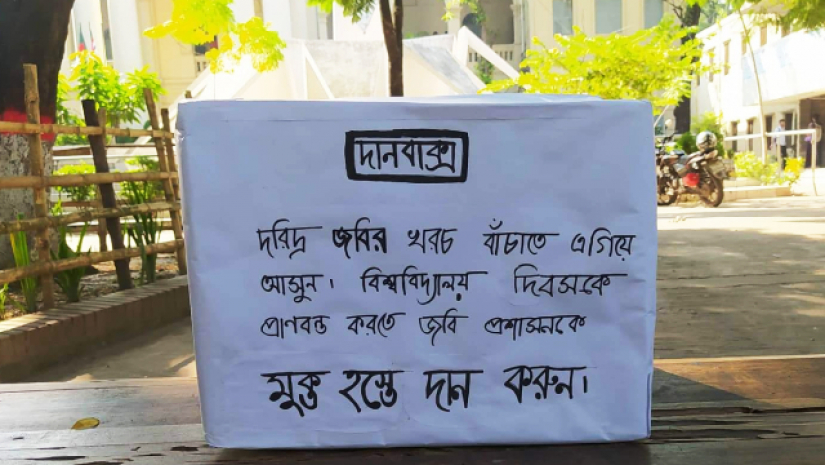 দানবাক্স
দরিদ্র জবির খরচ বাঁচাতে এগিয়ে
আসুন। বিশ্ববিদ্যালয় দিবসকে
প্রাণবন্ত করতে জবি প্রশাসনকে
মুক্ত হস্তে দান করুন।